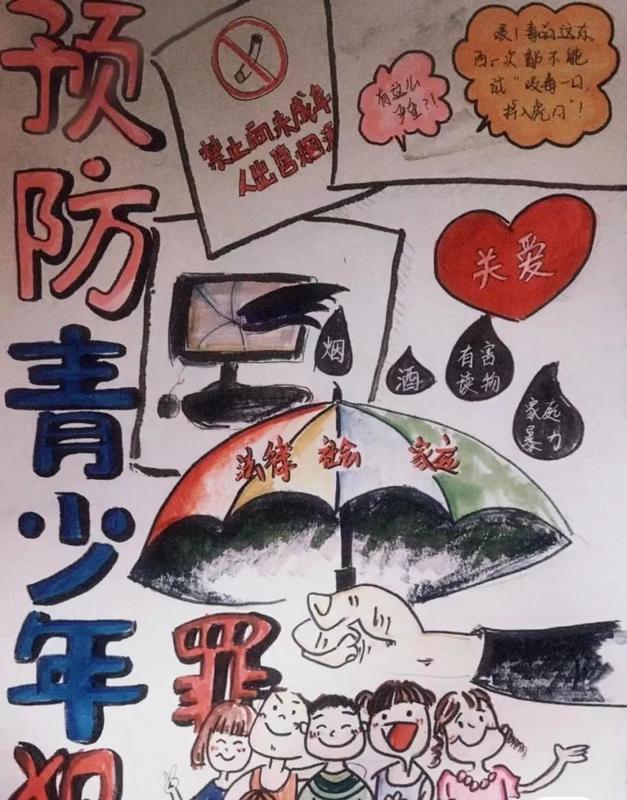 预
防
青
少
年
犯
罪
禁止向未成年
人出售烟酒
有这么
严重?!
毒品这东
西一次都不能
试“吸毒一口,
掉入虎口”!
关爱
烟
酒
有害
读物
家庭
暴力
法律 社会 家庭